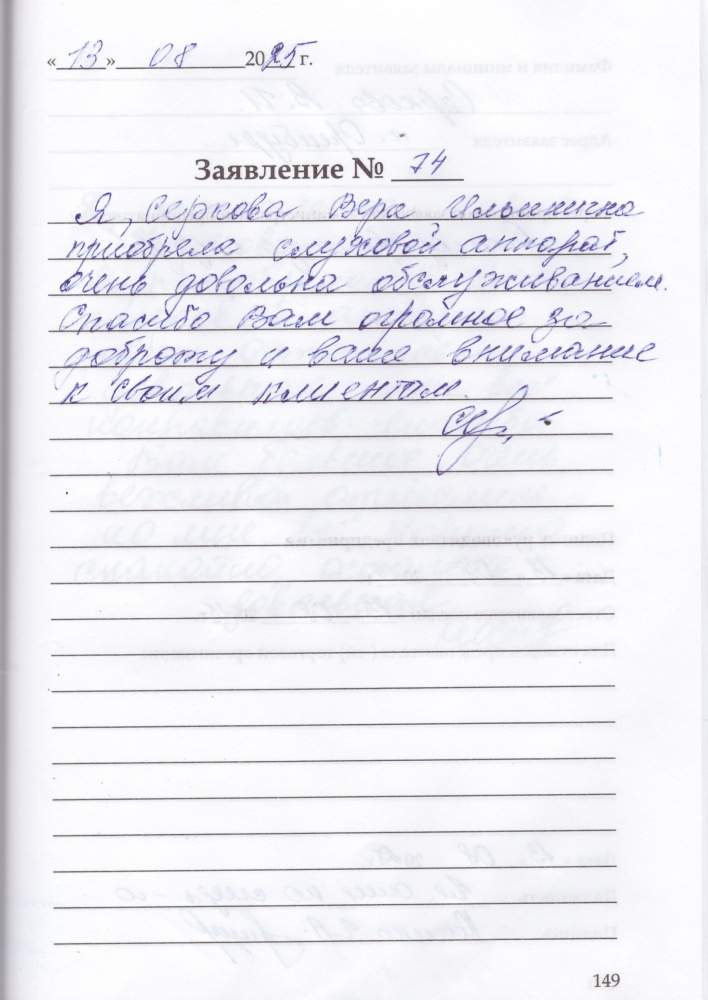 «13» 08 2025 г.
Заявление № 74
Я, Серкова Вера Ильинична
приобрела слуховой аппарат,
очень довольна обслуживанием.
Спасибо Вам огромное за
доброту и ваше внимание
к своим клиентам.
149